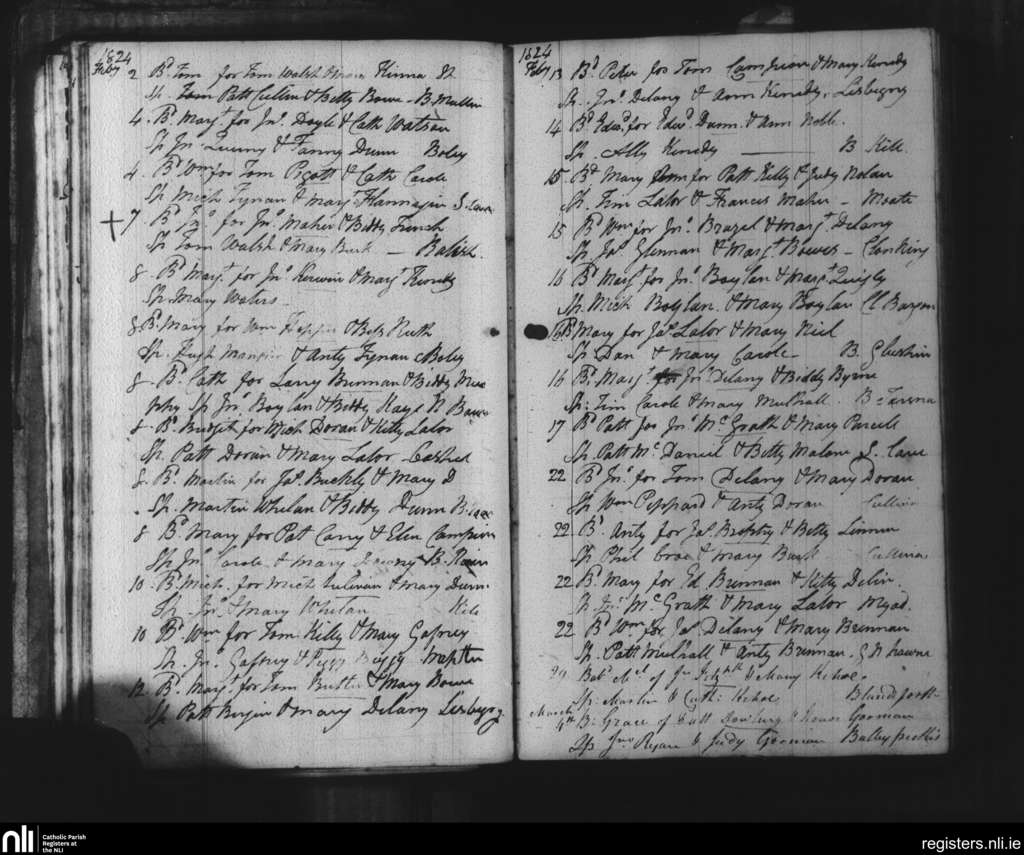 1824
Feby 2 Bd Tom for Tom Walsh & Kinna
Sp. Tom Patt Cullin & Betty Bowe - B. Mullin
4. Bd Margt for Jno Doyle & Cath Watson
Sp Jno & Fanny Dunn Boley
4. Bd Wm for Tom Pigott & Cath Carole
Sp Mich Tynan & Mary Flannagin S. Lane
7 Bd Jno for Jno Maher & Bitty
Sp Tom Walsh & Mary Burk -
8 Bd Margt for Jno Kerwin & Margt
Sp Mary Waters
8 Bd Mary for Wm & Betty
Sp. Hugh & Anty Tynan Boley
8. Bd Cath for Larry Brennan & Biddy Mur
phy Sp Jno Boylan & Bitty Kays N Bawn
8. Bd Bridget for Mich Doran & Kitty Lalor
Sp. Patt Doran & Mary Lalor Cashel
8. Bd Martin for Jas Buckly & Mary D
Sp. Martin Whelan & Biddy Dunn
8 Bd Mary for Pat Carry & Elen Campion
Sp Jno Carole & Mary
10 Bd Mich. for Mich & Mary Dunn
Sp. Jno & Mary Whelan Kile
10 Bd Wm for Tom Kelly & Mary Gafney
Sp. Jno Gafney & Peggy
12 Bd Margt for Tom Butler & Mary Bowe
Sp Patt Bergin & Mary Delany Lisbigny
1824
Feby 13 Bd Peter for Tom Campion & Mary Kenedy
Sp. Jno Delany & Ann Kenedy. Lisbigny
14 Bd Edwd for Edwd Dunn & Ann Noble.
Sp. Ally Kenedy — B Kill.
15 Bd Mary for Patt Kelly & Judy Nolan
Sp. Tim Lalor & Frances Maher - Moate
15 Bd Wm for Jno Brazel & Margt Delany
Sp Jas Glennan & Margt Bowes - Clonking
16 Bd Margt for Jno Boylan & Margt Quigly
Sp. Mich Boylan & Mary Boylan Cl Barron
16 Bd Mary for Jas Lalor & Mary Niel
Sp Dan & Mary Carole - B.
16 Bd Margt for Jno Delany & Biddy Byrne
Sp: Tim Carole & Mary Mulhall. B
17 Bd Patt for Jno McGrath & Mary Purcell
Sp. Patt McDaniel & Betty Malone S. Lane
22 Bd Jno for Tom Delany & Mary Doran
Sp Wm Peppard & Anty Doran Cullina
22. Bd Anty for Jas Brophy & Betty
Sp Phil & Mary Burk Cullina
22 Bd Mary for Ed Brennan & Kitty Delin.
Sp Jno McGrath & Mary Lalor Myad.
22 Bd Wm for Jas Delany & Mary Brennan
Sp. Patt Mulhall & Anty Brennan.
29 of & Mary Kehoe.
Sp: Martin & Cath: Kehoe Blandfort
March 4th B: Grace of Patt Dowling & Gorman
Sp Jno Ryan & Judy Gorman
nli
Catholic Parish
Registers at
the NLI
registers.nli.ie